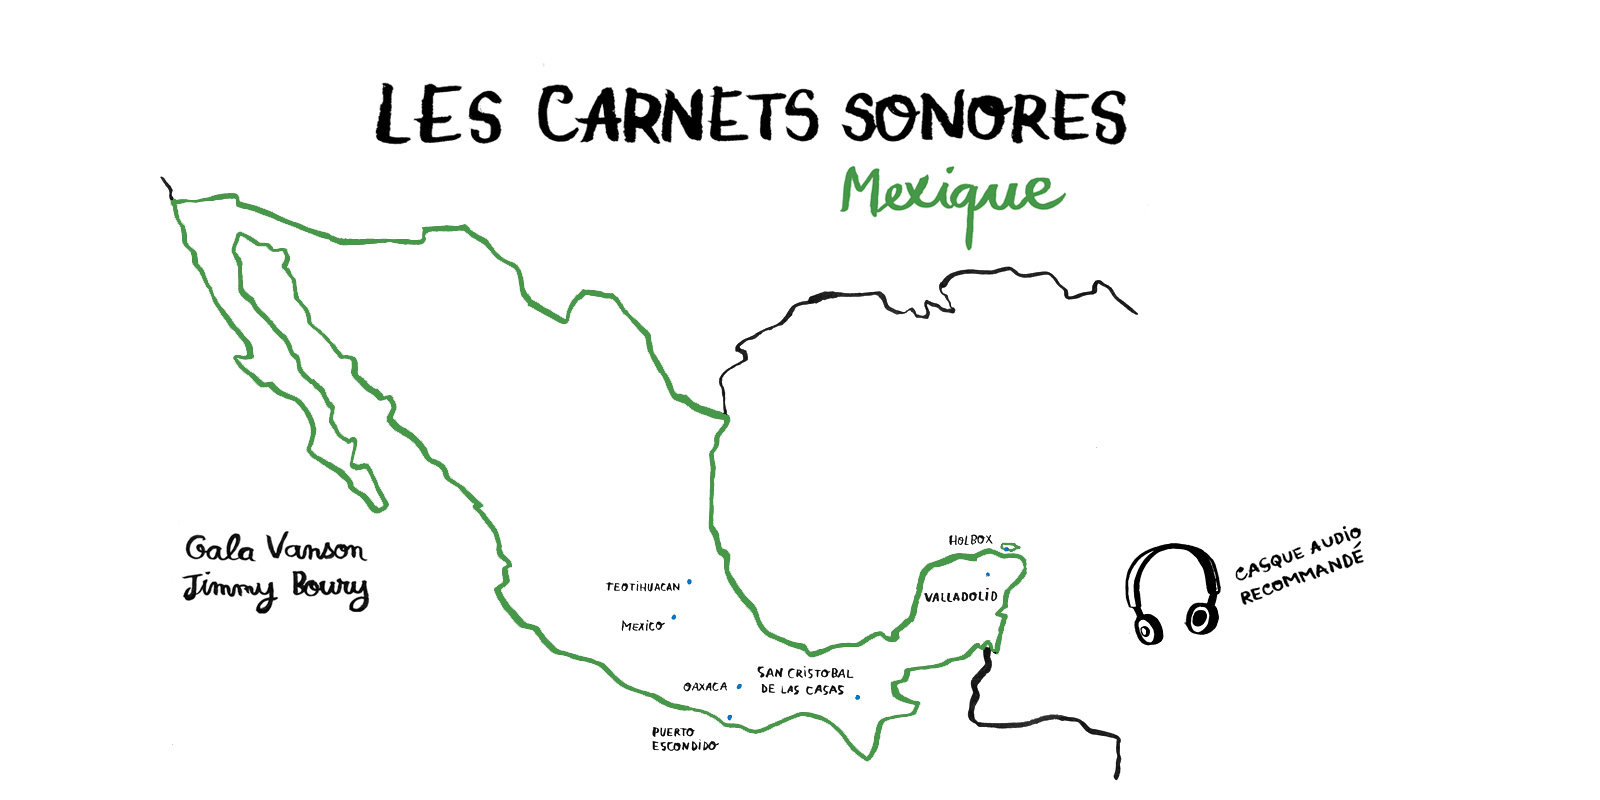 LES CARNETS SONORES
Mexique
Gala Vanson
Jimmy Boury
HOLBOX
VALLADOLID
TEOTIHUACAN
MEXICO
OAXACA
SAN CRISTOBAL
DE LAS CASAS
PUERTO
ESCONDIDO
CASQUE AUDIO
RECOMMANDÉ